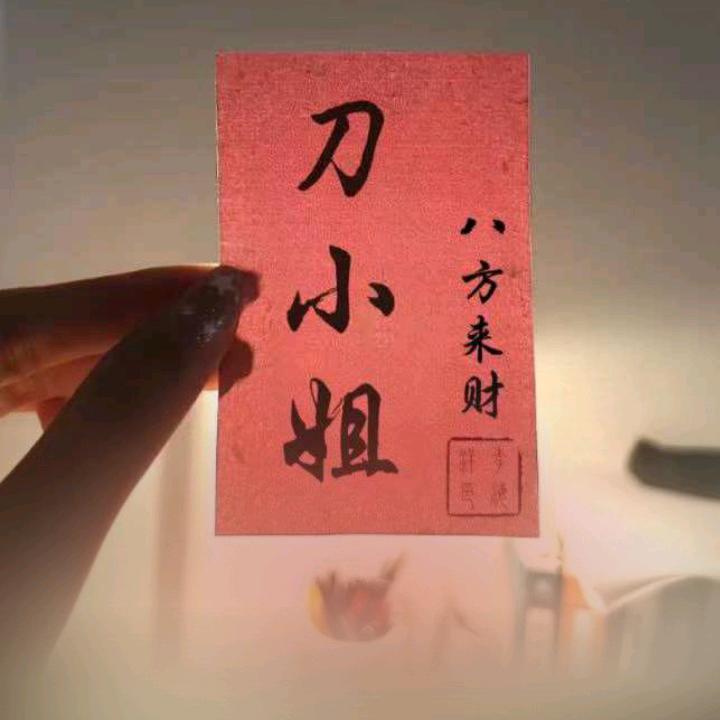 刀小姐
八方来财